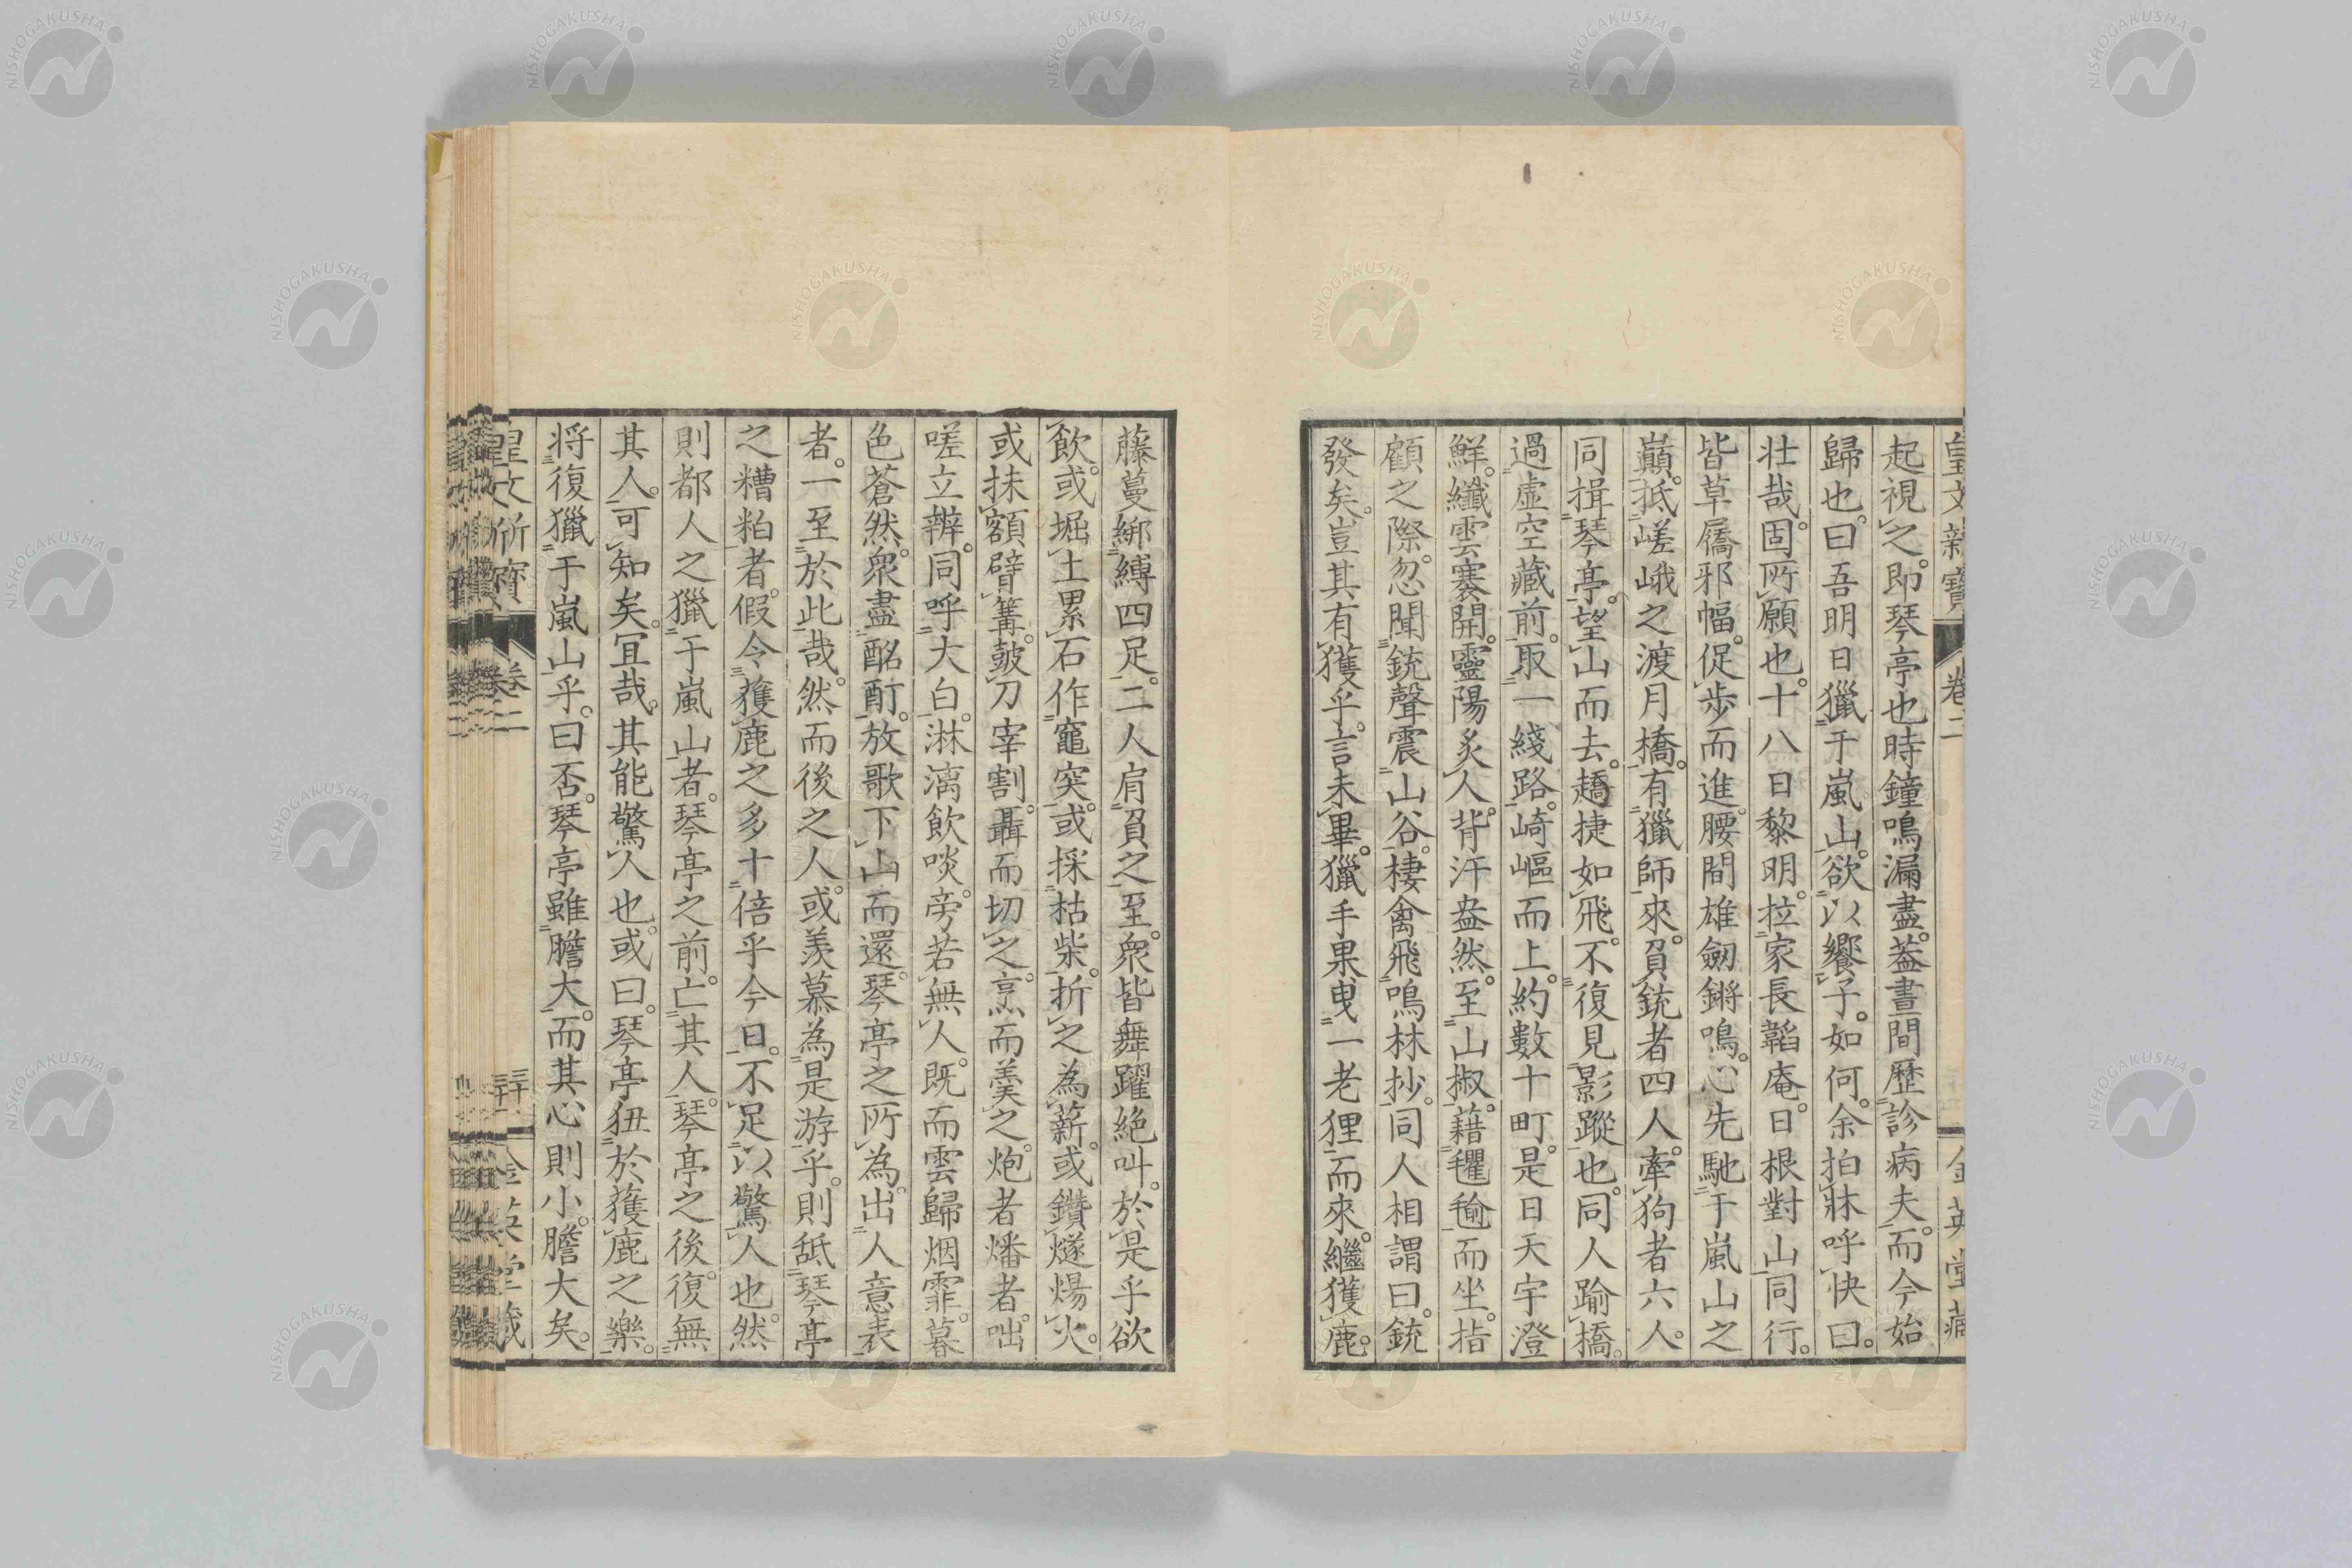 皇文新寶 卷二 金英堂藏
起視之。即琴亭也時鐘鳴漏盡。葢晝間歷診病夫。而今始
歸也。曰吾明日獵于嵐山。欲以饗子。如何。余拍牀呼快曰。
壯哉。固所願也。十八日黎明。拉家長韜庵。日根對山同行。
皆草屩邪幅。促步而進。腰間雄劒鏘鳴。心先馳于嵐山之
巔。抵嵯峨之渡月橋。有獵師來。負銃者四人。牽狗者六人。
同揖琴亭。望山而去。趫捷如飛。不復見影蹤也。同人踰橋。
過虛空藏前。取一綫路。崎嶇而上。約數十町。是日天宇澄
鮮。纖雲褰開。靈陽炙人。背汗盎然。至山椒。藉氍毹而坐。指
顧之際。忽聞銃聲震山谷。棲禽飛鳴林抄。同人相謂曰。銃
發矣。豈其有獲乎。言未畢。獵手果曳一老狸而來。繼獲鹿。
藤蔓綁縛四足。二人肩負之至。衆皆舞躍絕叫。於是乎欲
飲。或堀土累石作竈突。或採枯柴。折之為薪。或鑽燧煬火。
或抹額臂篝。皷刀宰割。聶而切之。烹而羹之。炮者燔者。咄
嗟立辨。同呼大白。淋漓飲啖。旁若無人。既而雲歸烟霏。暮
色蒼然。衆盡酩酊。放歌下山而還。琴亭之所為。出人意表
者。一至於此哉。然而後之人。或羨慕為是游乎。則舐琴亭
之糟粕者。假令獲鹿之多十倍乎今日。不足以驚人也。然
則都人之獵于嵐山者。琴亭之前。亡其人。琴亭之後。復無
其人。可知矣。宜哉。其能驚人也。或曰。琴亭狃於獲鹿之樂。
将復獵于嵐山乎。曰否。琴亭雖膽大。而其心則小。膽大矣。
卷二
NISHOGAKUSHA